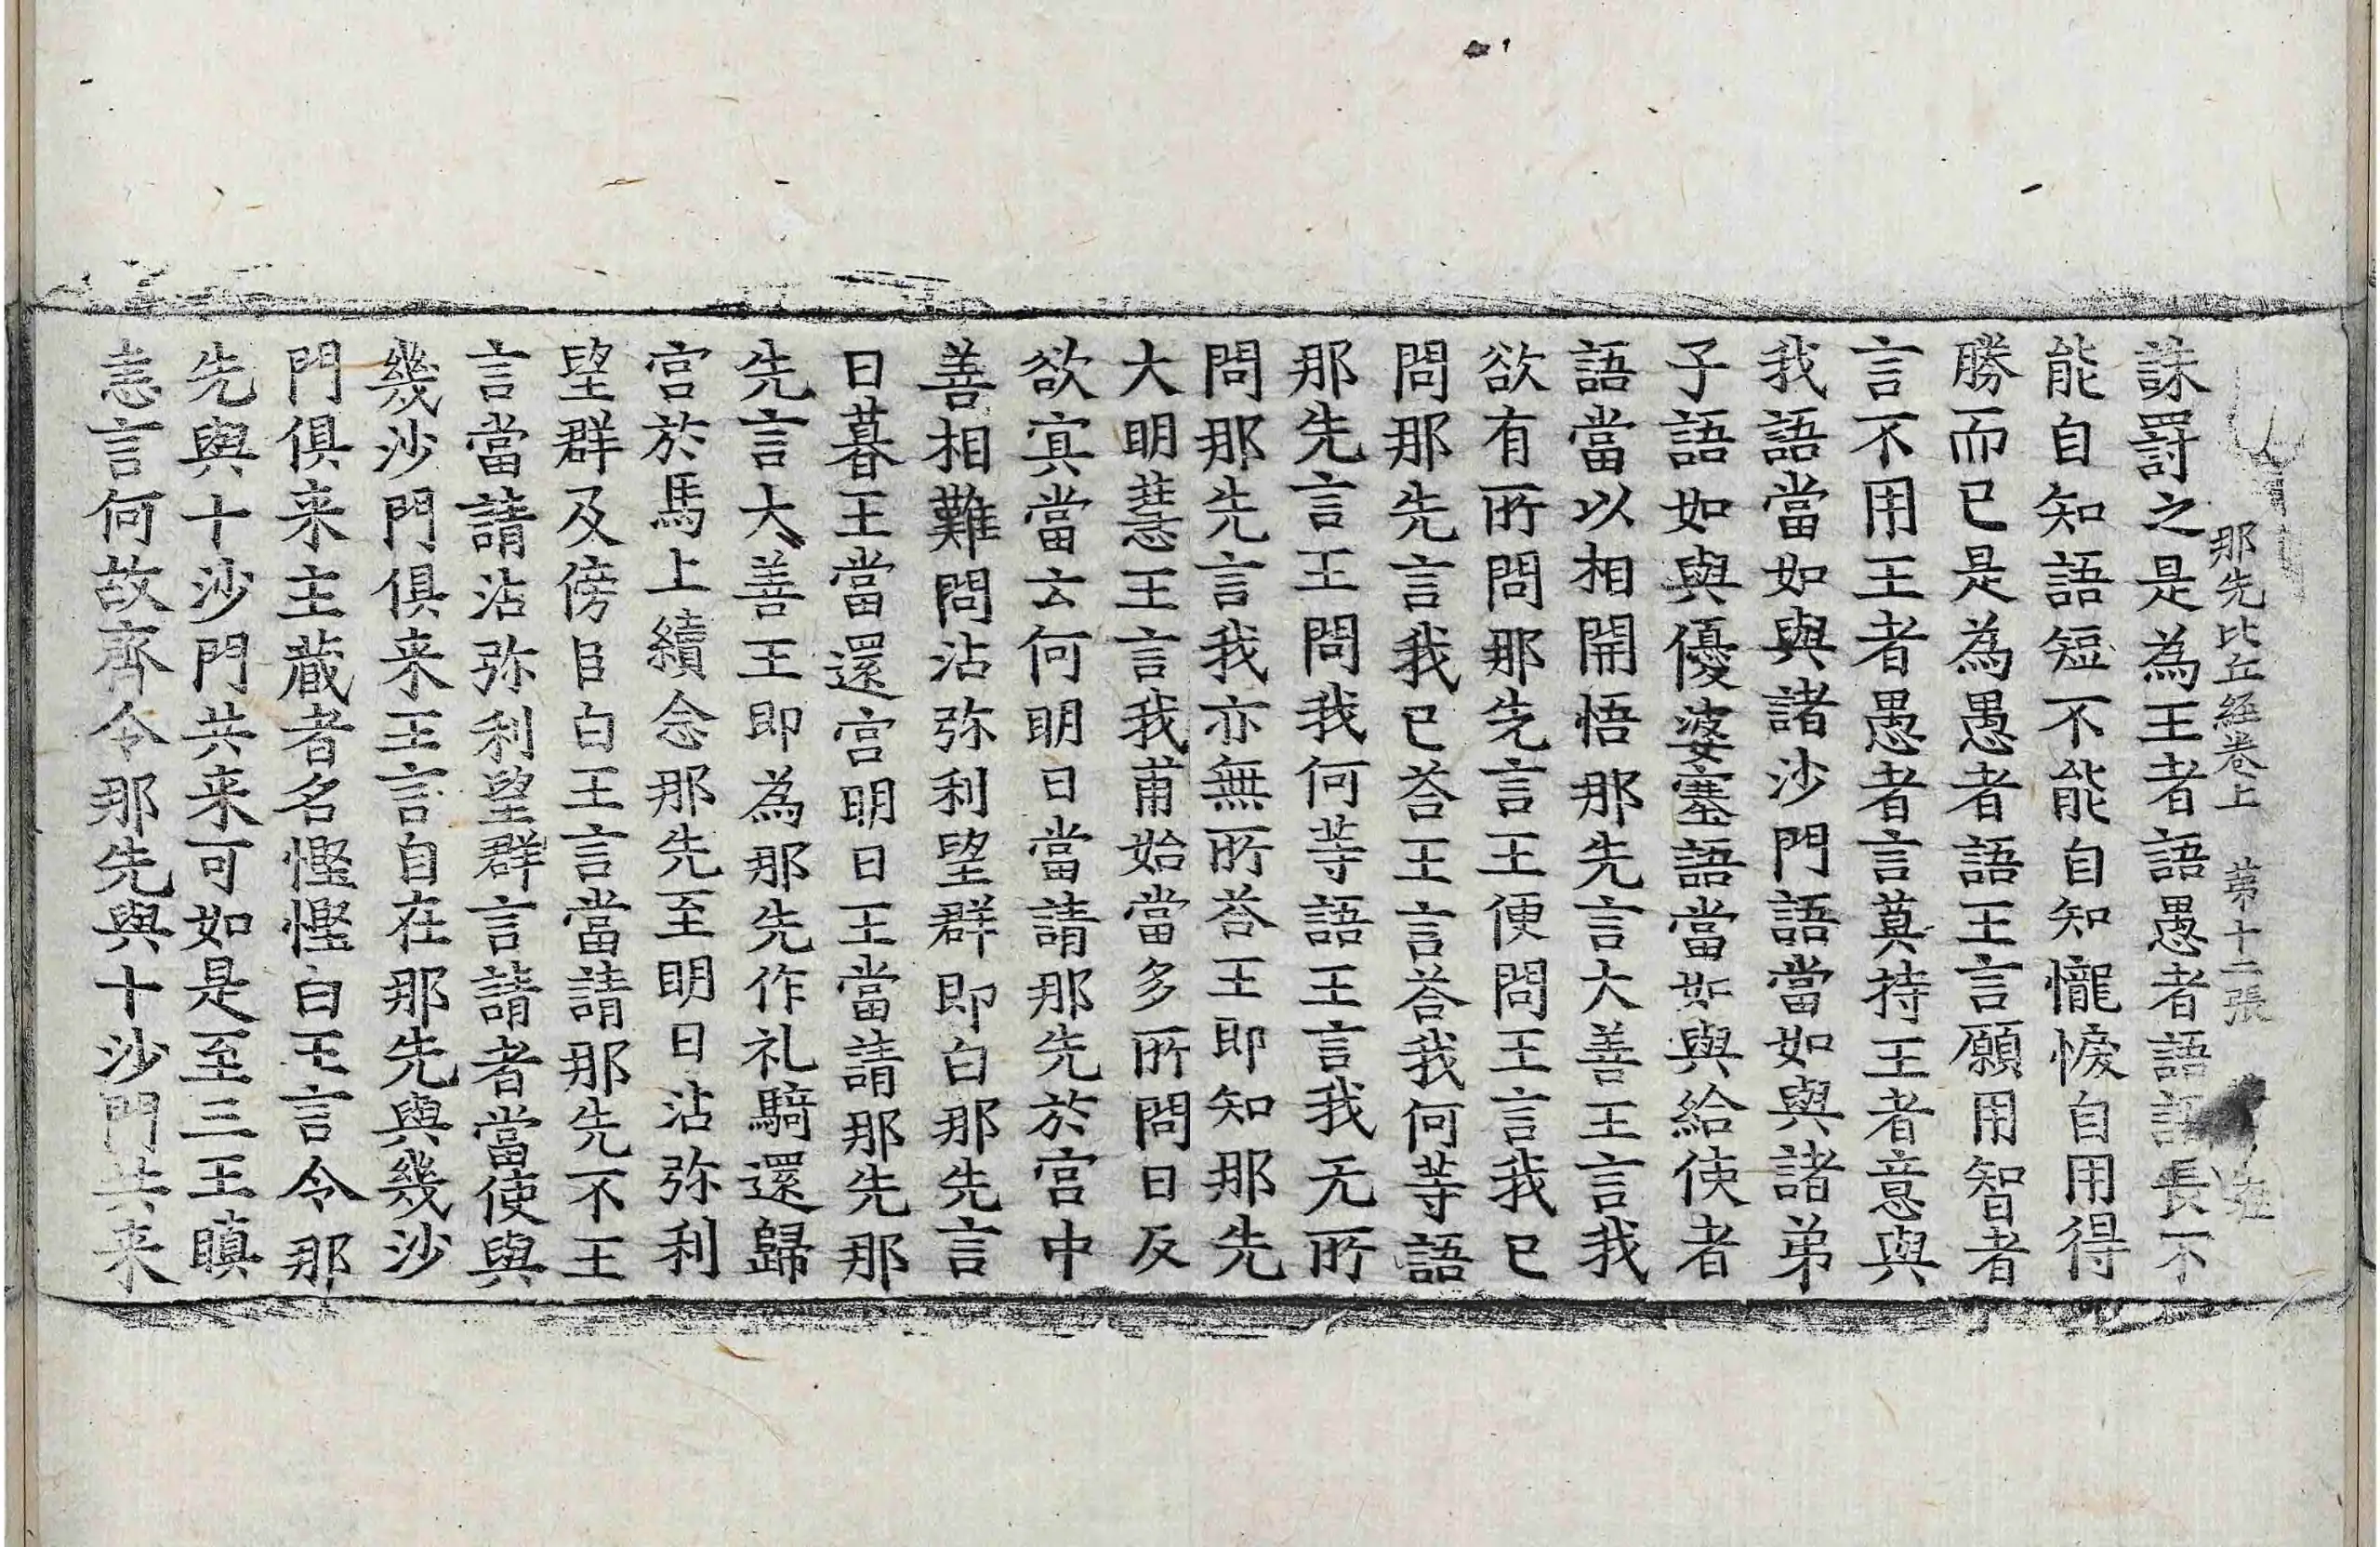 那先比丘経巻上 第十二張
誅罸之是為王者語愚者語語長不
能自知語短不能自知儱悷自用得
勝而已是為愚者語王言願用智者
言不用王者愚者言莫持王者意與
我語當如與諸沙門語當如與諸弟
子語如與優婆塞語當如與給使者
語當以相開悟那先言大善王言我
欲有所問那先言王便問王言我已
問那先言我已荅王言荅我何等語
那先言王問我何等語王言我无所
問那先言我亦無所荅王即知那先
大明慧王言我甫始當多所問日反
欲冥當云何明日當請那先於宫中
善相難問沾弥利望群即白那先言
日暮王當還宫明日王當請那先那
先言大善王即為那先作礼騎還歸
宫於馬上續念那先至明日沾弥利
望群及傍臣白王言當請那先不王
言當請沾弥利望群言請者當使與
幾沙門俱来王言自在那先與幾沙
門俱来主蔵者名慳慳白王言令那
先與十沙門共来可如是至三王瞋
恚言何故齊令那先與十沙門共来